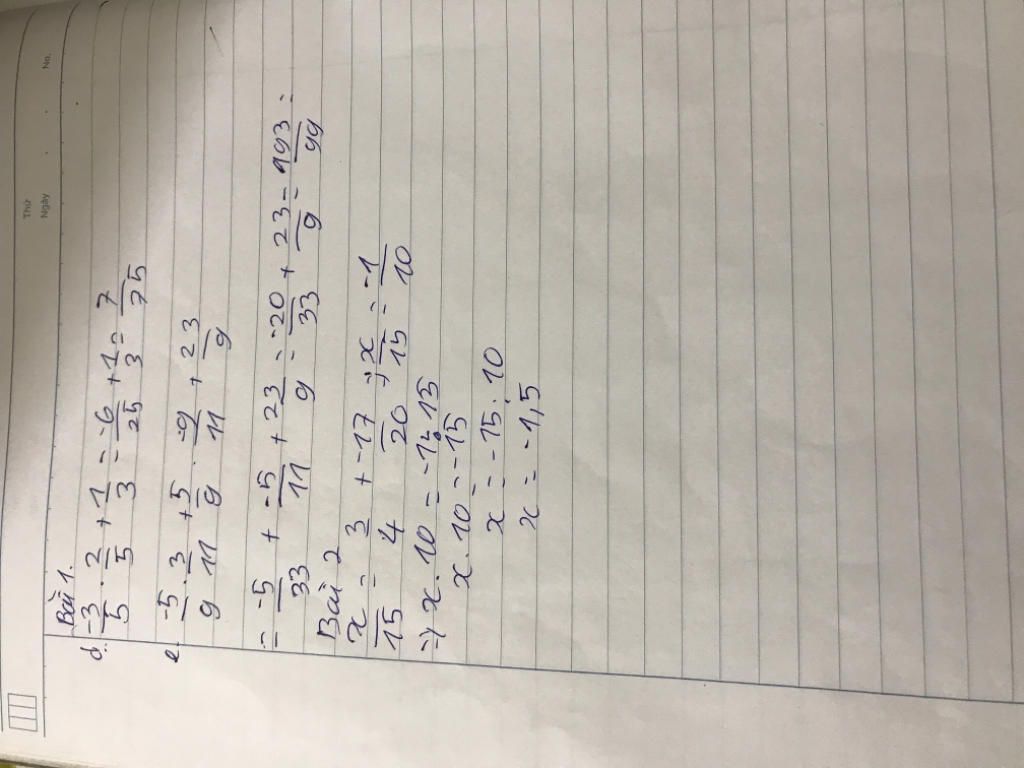 Thứ
Ngày
No.
Bài 1.
d. -3/5 . 2/5 + 1/3 = -6/25 + 1/3 = 7/75
e -5/9 . 3/11 + 5/9 . -9/11 + 23/9
= -5/33 + -5/11 + 23/9 = -20/33 + 23/9 = 193/99 .
Bài 2
x/15 = 3/4 + -17/20 => x/15 = -1/10
=> x . 10 = -1 . 15
x . 10 = -15
x = -15 : 10
x = -1,5